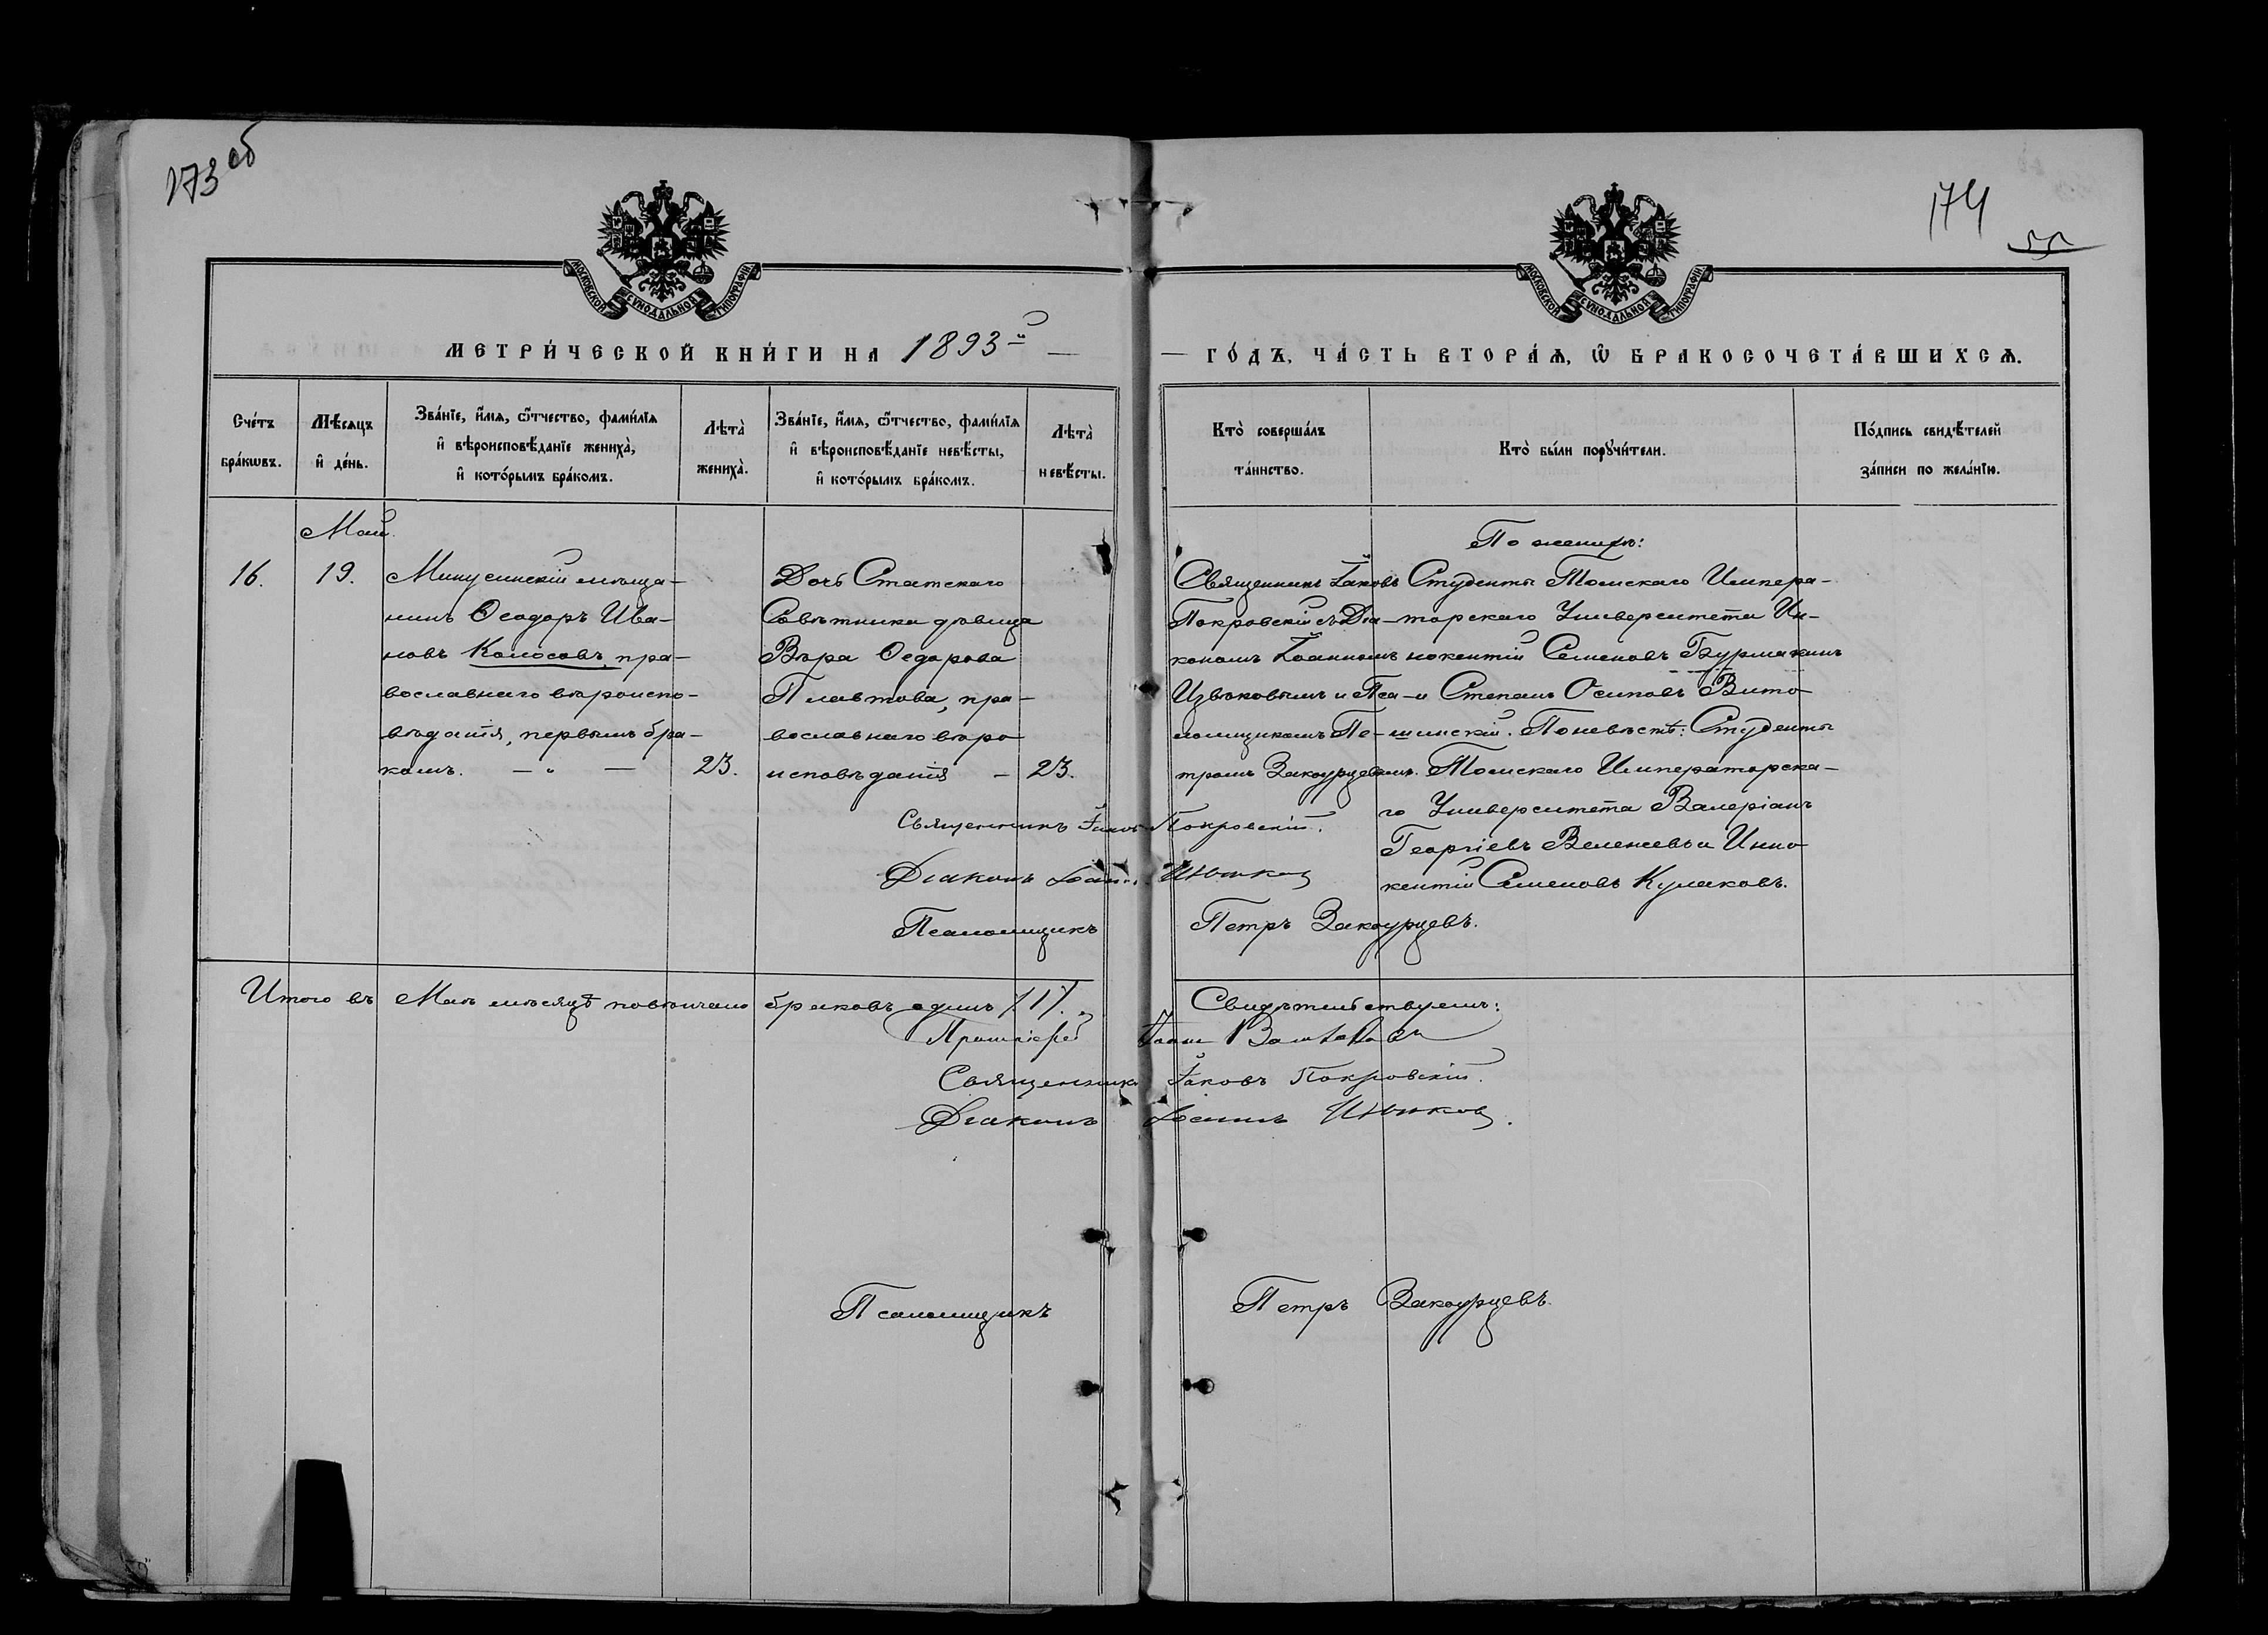 173 об
174
МОСКОВСКОЙ СѴНОДАЛЬНОЙ ТИПОГРАФІИ
МОСКОВСКОЙ СѴНОДАЛЬНОЙ ТИПОГРАФІИ
МЕТРИ́ЧЕСКОЙ КНИ́ГИ НА 1893 й —
— ГО́ДЪ, ЧА́СТЬ ВТОРА́Ѧ, Ѡ҆ БРАКОСОЧЕТА́ВШИХСѦ.
Сче́тъ бра́кωвъ.
Мѣ́сяцъ и҆ де́нь.
Зва́нїе, и҆́мя, ѻ҆́тчество, фами́лїя и҆ вѣроисповѣ́данїе жениха̀, и҆ кото́рымъ бра́комъ.
Лѣта̀ жениха̀.
Зва́нїе, и҆́мя, ѻ҆́тчество, фами́лїя и҆ вѣроисповѣ́данїе невѣ́сты, и҆ кото́рымъ бра́комъ.
Лѣта̀ невѣ́сты.
Кто̀ соверша́лъ та́инство.
Кто̀ бы́ли порꙋчи́тели.
По́дпись свидѣ́телей за́писи по жела́нїю.
Май.
16.
19.
Минусинскій мѣща-
нинъ Ѳеодоръ Ива-
новъ Колосовъ, пра-
вославнаго вѣроиспо-
вѣданія, первымъ бра-
комъ. — " —
23.
Дочь Статскаго
Совѣтника дѣвица
Вѣра Ѳедорова
Плавтова, пра-
вославнаго вѣро
исповѣданія —
23.
Священникъ Іаковъ
Покровскій съ Діа-
кономъ Іоанномъ
Извѣковымъ и Пса-
ломщикомъ Пе-
тромъ Закоурцевымъ.
По женихѣ:
Студенты Томскаго Импера-
торскаго Университета Ин-
нокентій Семеновъ Бурмакинъ
и Степанъ Осиповъ Вито
шинскій. По невѣстѣ: Студенты
Томскаго Императорска-
го Университета Валеріанъ
Георгіевъ Веленсевъ и Инно
кентій Семеновъ Кулаковъ.
Священникъ Іаковъ Покровскій.
Діаконъ Іоаннъ
Псаломщикъ Петръ Закоурцевъ.
Итого въ Маѣ мѣсяцѣ повѣнчано браковъ одинъ /1/.
Свидѣтельствуемъ:
Протоіерей Іоаннъ
Священникъ Іаковъ Покровскій.
Діаконъ Іоаннъ
Псаломщикъ Петръ Закоурцевъ.